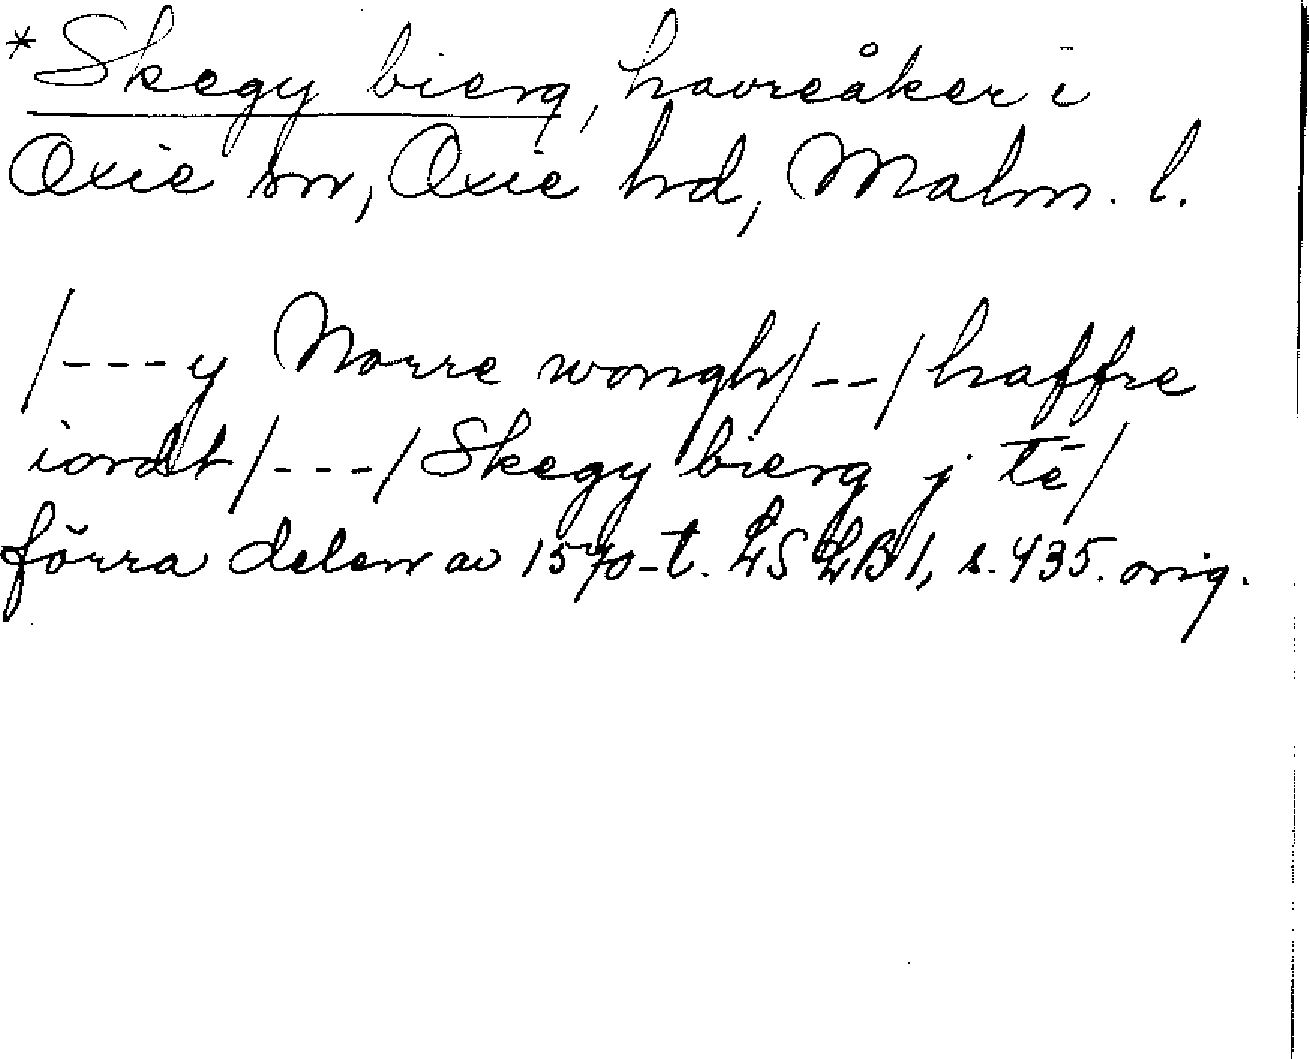 *Skegy bierg, havreåker i
Oxie sn, Oxie hd, Malm. l.
/---y Norre wongh/--/haffre
iordt/---/Skegy bierg j tē/
förra delen av 1570-t. LSLB 1, s. 435. orig.